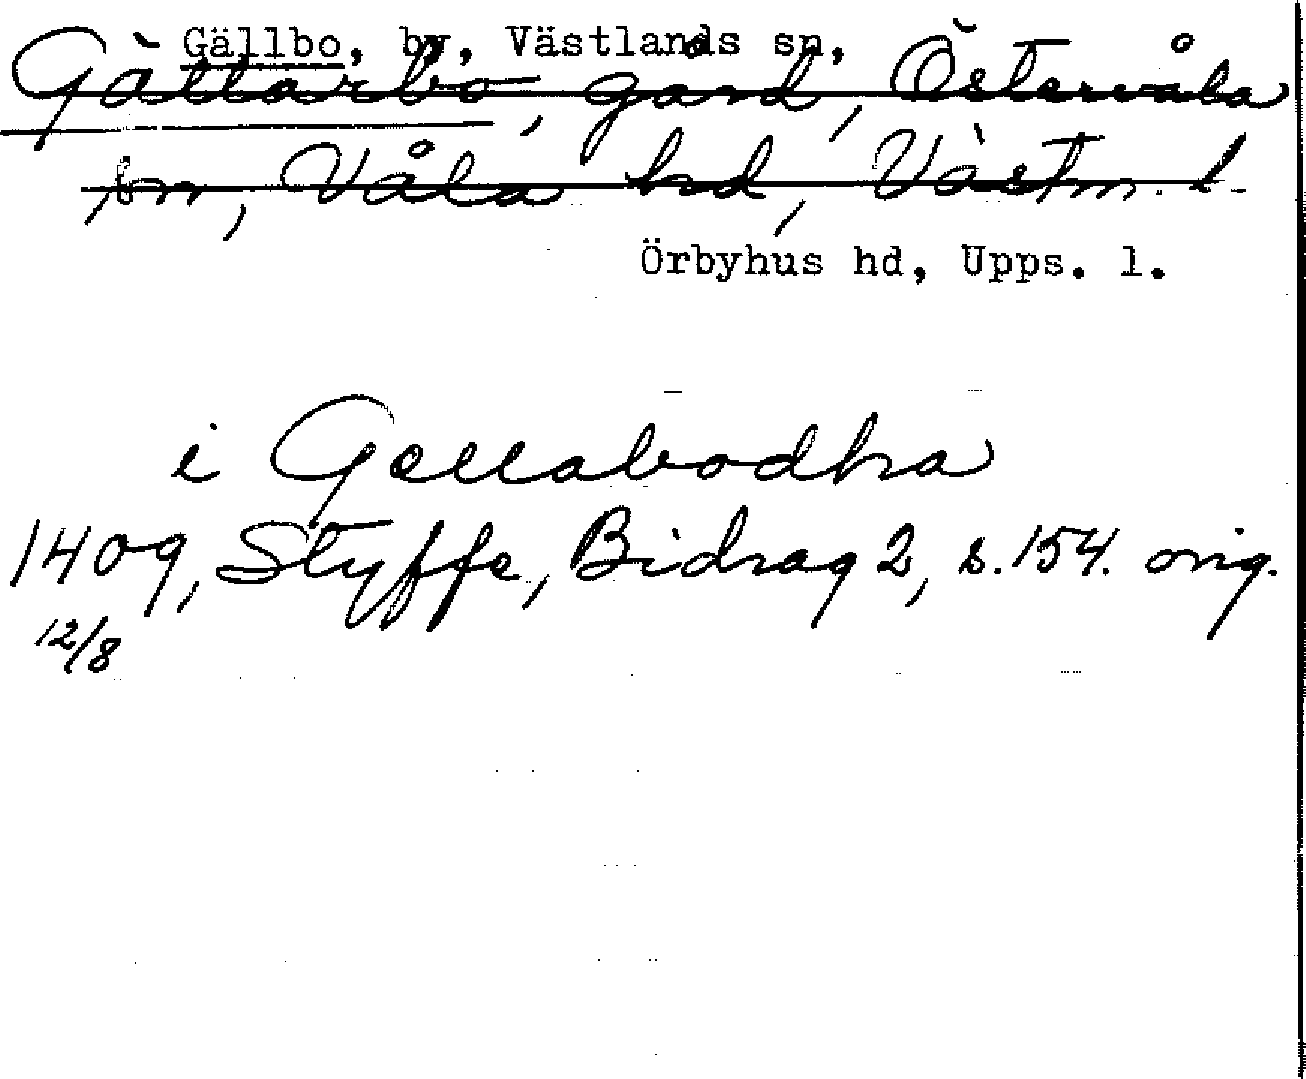 Gällbo, by, Västlands sn,
Gällarbo, gård, Östervåla
sn, Våla hd, Västm. l.
Örbyhus hd, Upps. l.
i Gellabodha
1409, Styffe, Bidrag 2, s. 154. orig.
12/8